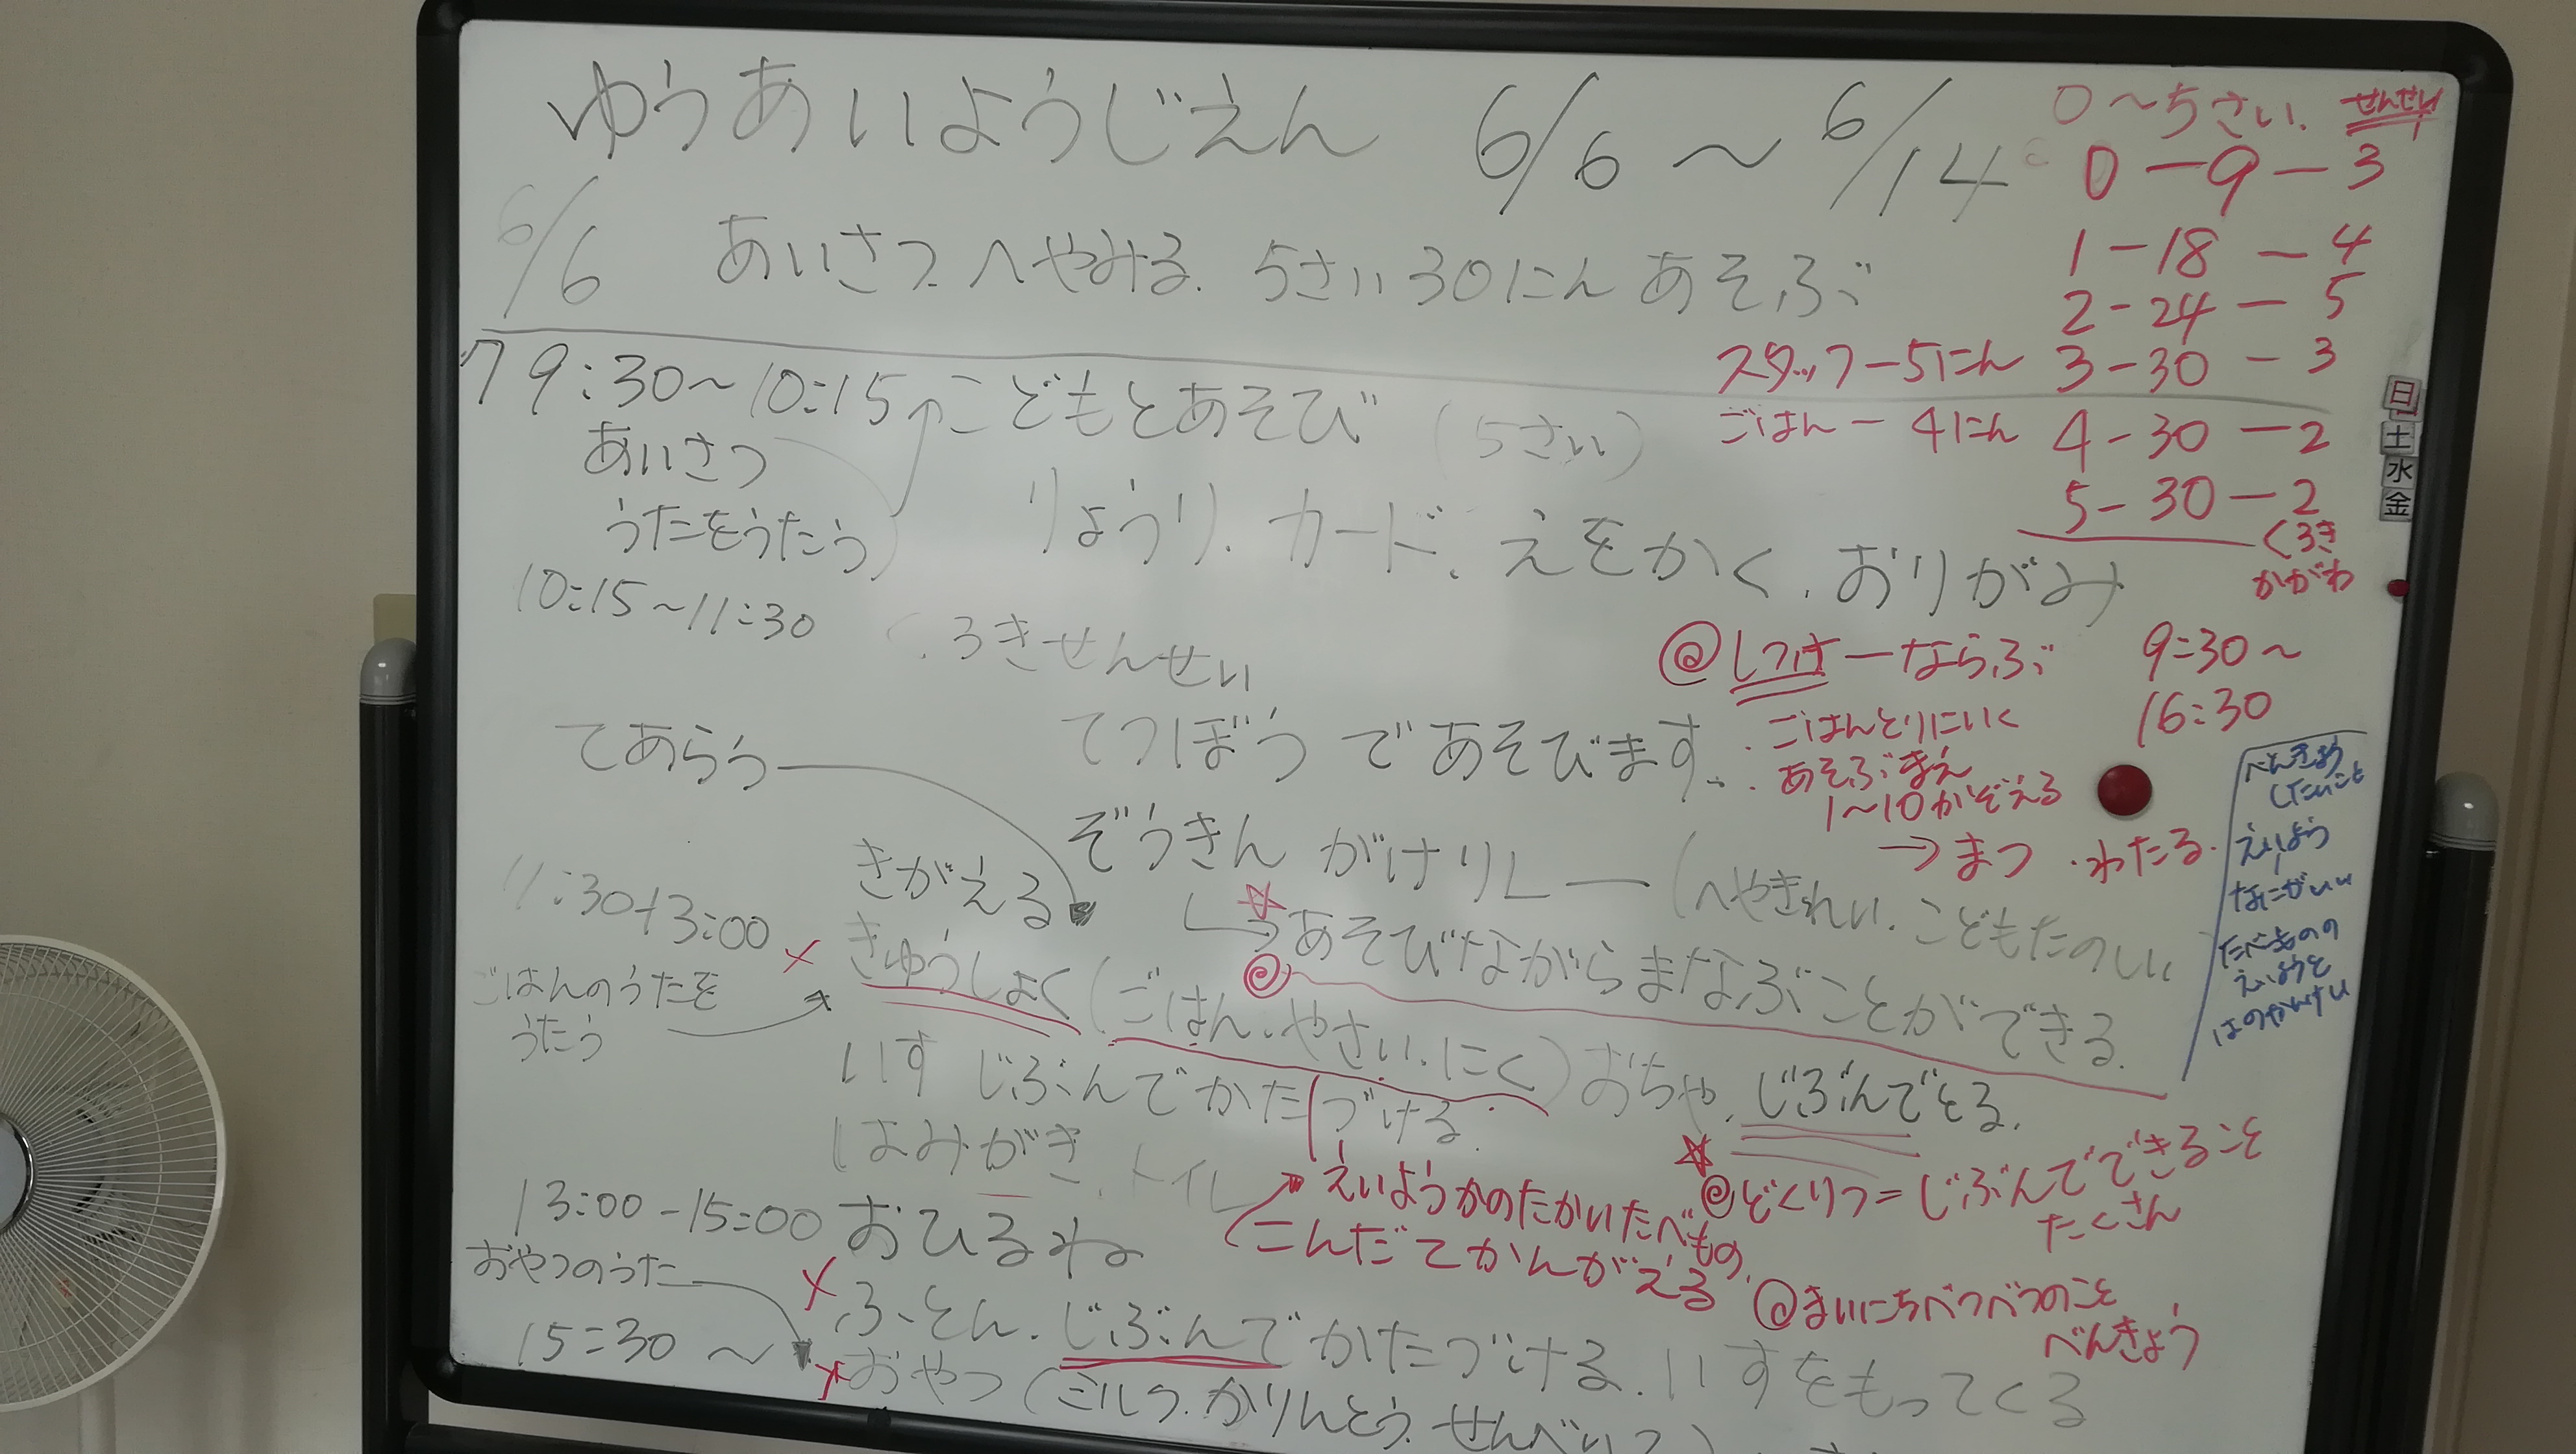 ゆうあいようじえん 6/6 ～ 6/14
0～5さい. せんせい
0－9－3
1－18－4
2－24－5
3－30－3
4－30－2
5－30－2
くろき
かがわ
スタッフ－5にん
ごはん－4にん
6/6 あいさつ.へやみる. 5さい30にん あそぶ
7 9:30～10:15 こどもとあそび (5さい)
あいさつ
うたをうたう
りょうり. カード. えをかく. おりがみ
10:15～11:30 くろきせんせい
てあらう
てつぼう であそびます.
ぞうきん がけリレー (へやきれい. こどもたのしい
あそびながらまなぶことができる.
@しつけーならぶ
・ごはんとりにいく
・あそぶまえ
1～10かぞえる
→まつ ・わたる.
9:30～
16:30
べんきょう
したいこと
えいよう
なにがいい
たべものの
えいようと
はのかんけい
きがえる
11:30-13:00
きゅうしょく(ごはん.やさい.にく)おちゃ. じぶんでとる.
ごはんのうたを
うたう
いす じぶんでかたづける.
はみがき. トイレ
えいようかのたかいたべもの
こんだてかんがえる
@どくりつ=じぶんでできること
たくさん
@まいにちべつべつのこと
べんきょう
13:00-15:00 おひるね
おやつのうた
ふとん. じぶんでかたづける. いすをもってくる
15:30～ おやつ (ミルク. かりんとう. せんべい
日
土
水
金